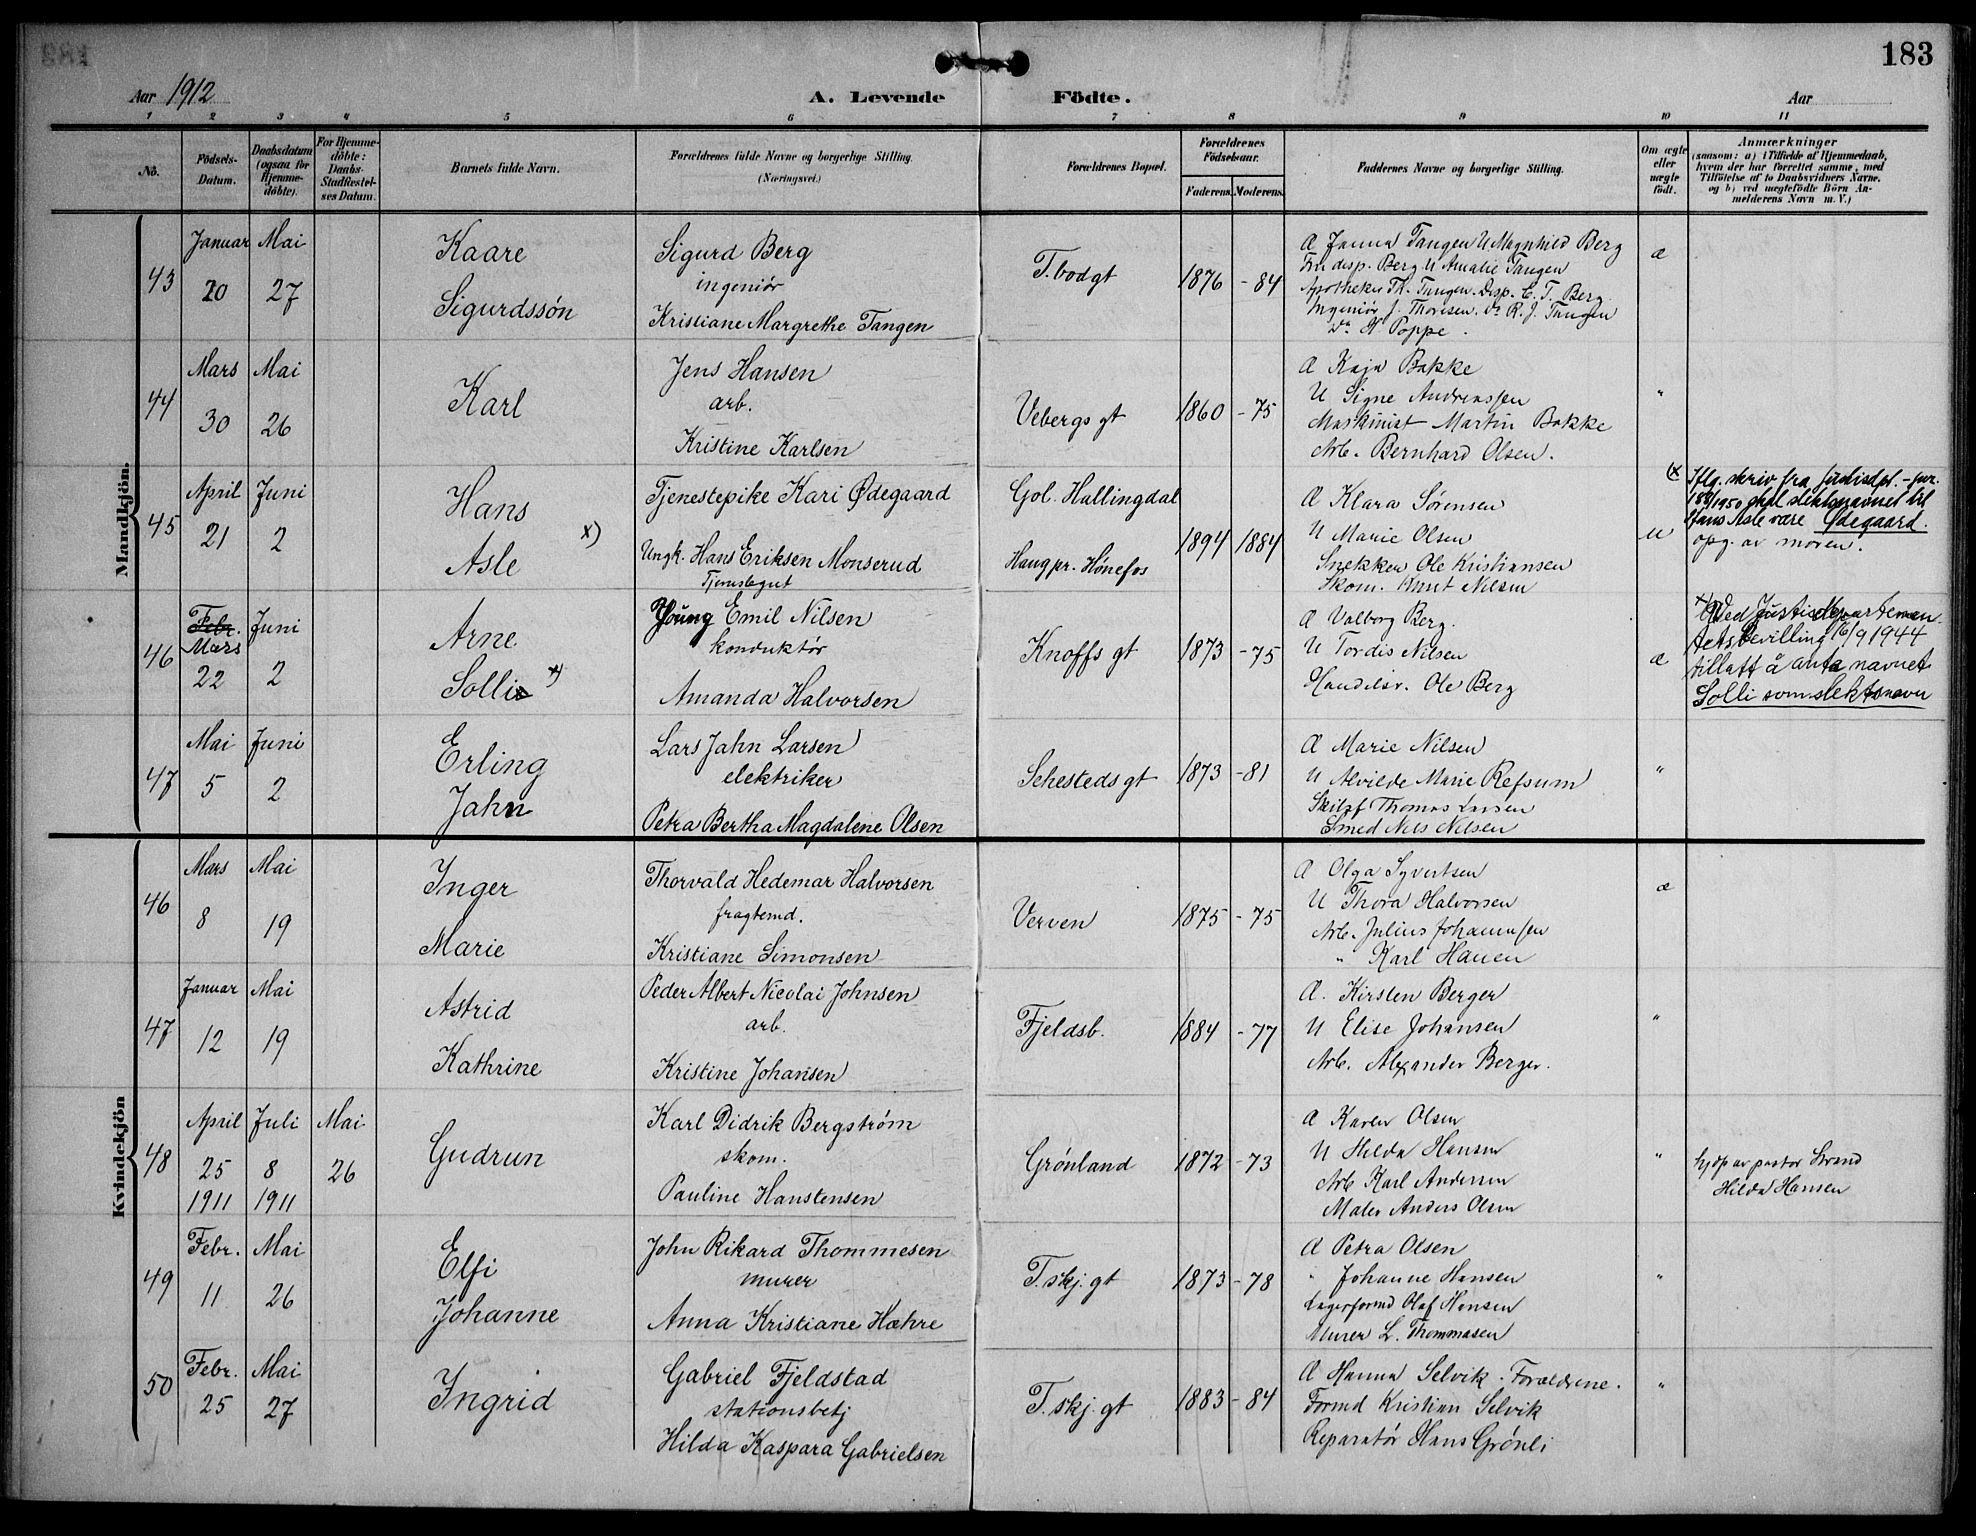 183
Aar 1912
A. Levende Födte.
Aar
1 2 3 4 5 6 7 8 9 10 11
No.
Födsels-Datum.
Daabsdatum (ogsaa for Hjemme-döbte).
For Hjemme-döbte: Daabs-Stadfæstel-ses Datum.
Barnets fulde Navn.
Forældrenes fulde Navne og borgerlige Stilling.
(Næringsvei.)
Forældrenes Bopæl.
Forældrenes Födselsaar.
Faderens. Moderens.
Faddernes Navne og borgerlige Stilling.
Om ægte eller uægte födt.
Anmærkninger
(saasom: a) i Tilfælde af Hjemmedaab,
hvem der har forrettet samme, med
Tilföielse af to Daabsvidners Navne.
og b) ved uægtefödte Börn An-
melderens Navn m. V.)
Mandkjön.
43
Januar 20
Mai 27
Kaare
Sigurdssön
Sigurd Berg
ingeniør
Kristiane Margrethe Tangen
T. bodgt
1876 - 84
Æ Janna Tangen U Magnhild Berg
Fru disp. Berg U Amalie Tangen
Apotheker Th. Tangen. Disp. C. T. Berg.
Ingeniør J. Thoresen. Do R. J. Tangen
Do N Poppe.
æ
44
Mars 30
Mai 26
Karl
Jens Hansen
arb.
Kristine Karlsen
Vebergs gt
1860 - 75
Æ Kaja Bakke
U Signe Andreassen
Maskinist Martin Bakke
Arb. Bernhard Olsen.
"
45
April 21
Juni 2
Hans
Asle x)
Tjenestepike Kari Ødegaard
Ungk. Hans Eriksen Monserud
Tjenstegut
Gol. Hallingdal
Haug pr. Hønefos
1894 1884
Æ Klara Sørensen
U Marie Olsen
Snekker Ole Kristiansen
Skom. Knut Nilsen
u
(x Iflg. skriv fra justisdpt.
1950 skal slektsnavnet til
Hans Asle være Ødegaard.
opg. av moren.
46
Febr. Mars 22
Juni 2
Arne
Solli x)
Young Emil Nilsen
konduktør
Amanda Halvorsen
Knoffs gt
1873 - 75
Æ Valborg Berg.
U Tordis Nilsen
Handelsr. Ole Berg
æ
x) Ved Justisdepartemen-
tets bevilling 16/9 1944
tillatt å anta navnet
Solli som slektsnavn
47
Mai 5
Juni 2
Erling
Jahn
Lars Jahn Larsen
elektriker
Petra Bertha Magdalene Olsen
Sehesteds gt
1873 - 81
Æ Marie Nilsen
U Alvilde Marie Refsum
Thomas Larsen
Smed Nils Nilsen
"
Kvindekjön
46
Mars 8
Mai 19
Inger
Marie
Thorvald Hedemar Halvorsen
fragtemd.
Kristiane Simonsen
Verven
1875 - 75
Æ Olga Syvertsen
U Thora Halvorsen
Arb. Julius Johannesen
" Karl Hansen
æ
47
Januar 12
Mai 19
Astrid
Kathrine
Peder Albert Nicolai Johnsen
arb.
Kristine Johansen
Fjeldsb.
1884 - 77
Æ. Kirsten Berger
U Elise Johansen
Arb. Alexander Berger.
"
48
April 25 1911
Juli 8 1911
Mai 26
Gudrun
Karl Didrik Bergstrøm
skom.
Pauline Hanstensen
Grønland
1872 - 73
Æ Karen Olsen
U Hilda Hansen
Arb Karl Andersen
Maler Anders Olsen
"
hjdp av pastor Strand
Hilda Hansen
49
Febr. 11
Mai 26
Elfi
Johanne
John Rikard Thommesen
murer
Anna Kristiane Hæhre
T. skj. gt
1873 - 78
Æ Petra Olsen
" Johanne Hansen
Lagerformd Olaf Hansen
Murer L. Thommasen
"
50
Febr. 25
Mai 27
Ingrid
Gabriel Fjeldstad
stationsbetj
Hilda Kaspara Gabrielsen
T. skj. gt
1883 - 84
Æ Hanna Selvik. Forældrene.
Formd Kristian Selvik
Reparatør Hans Grønli
"